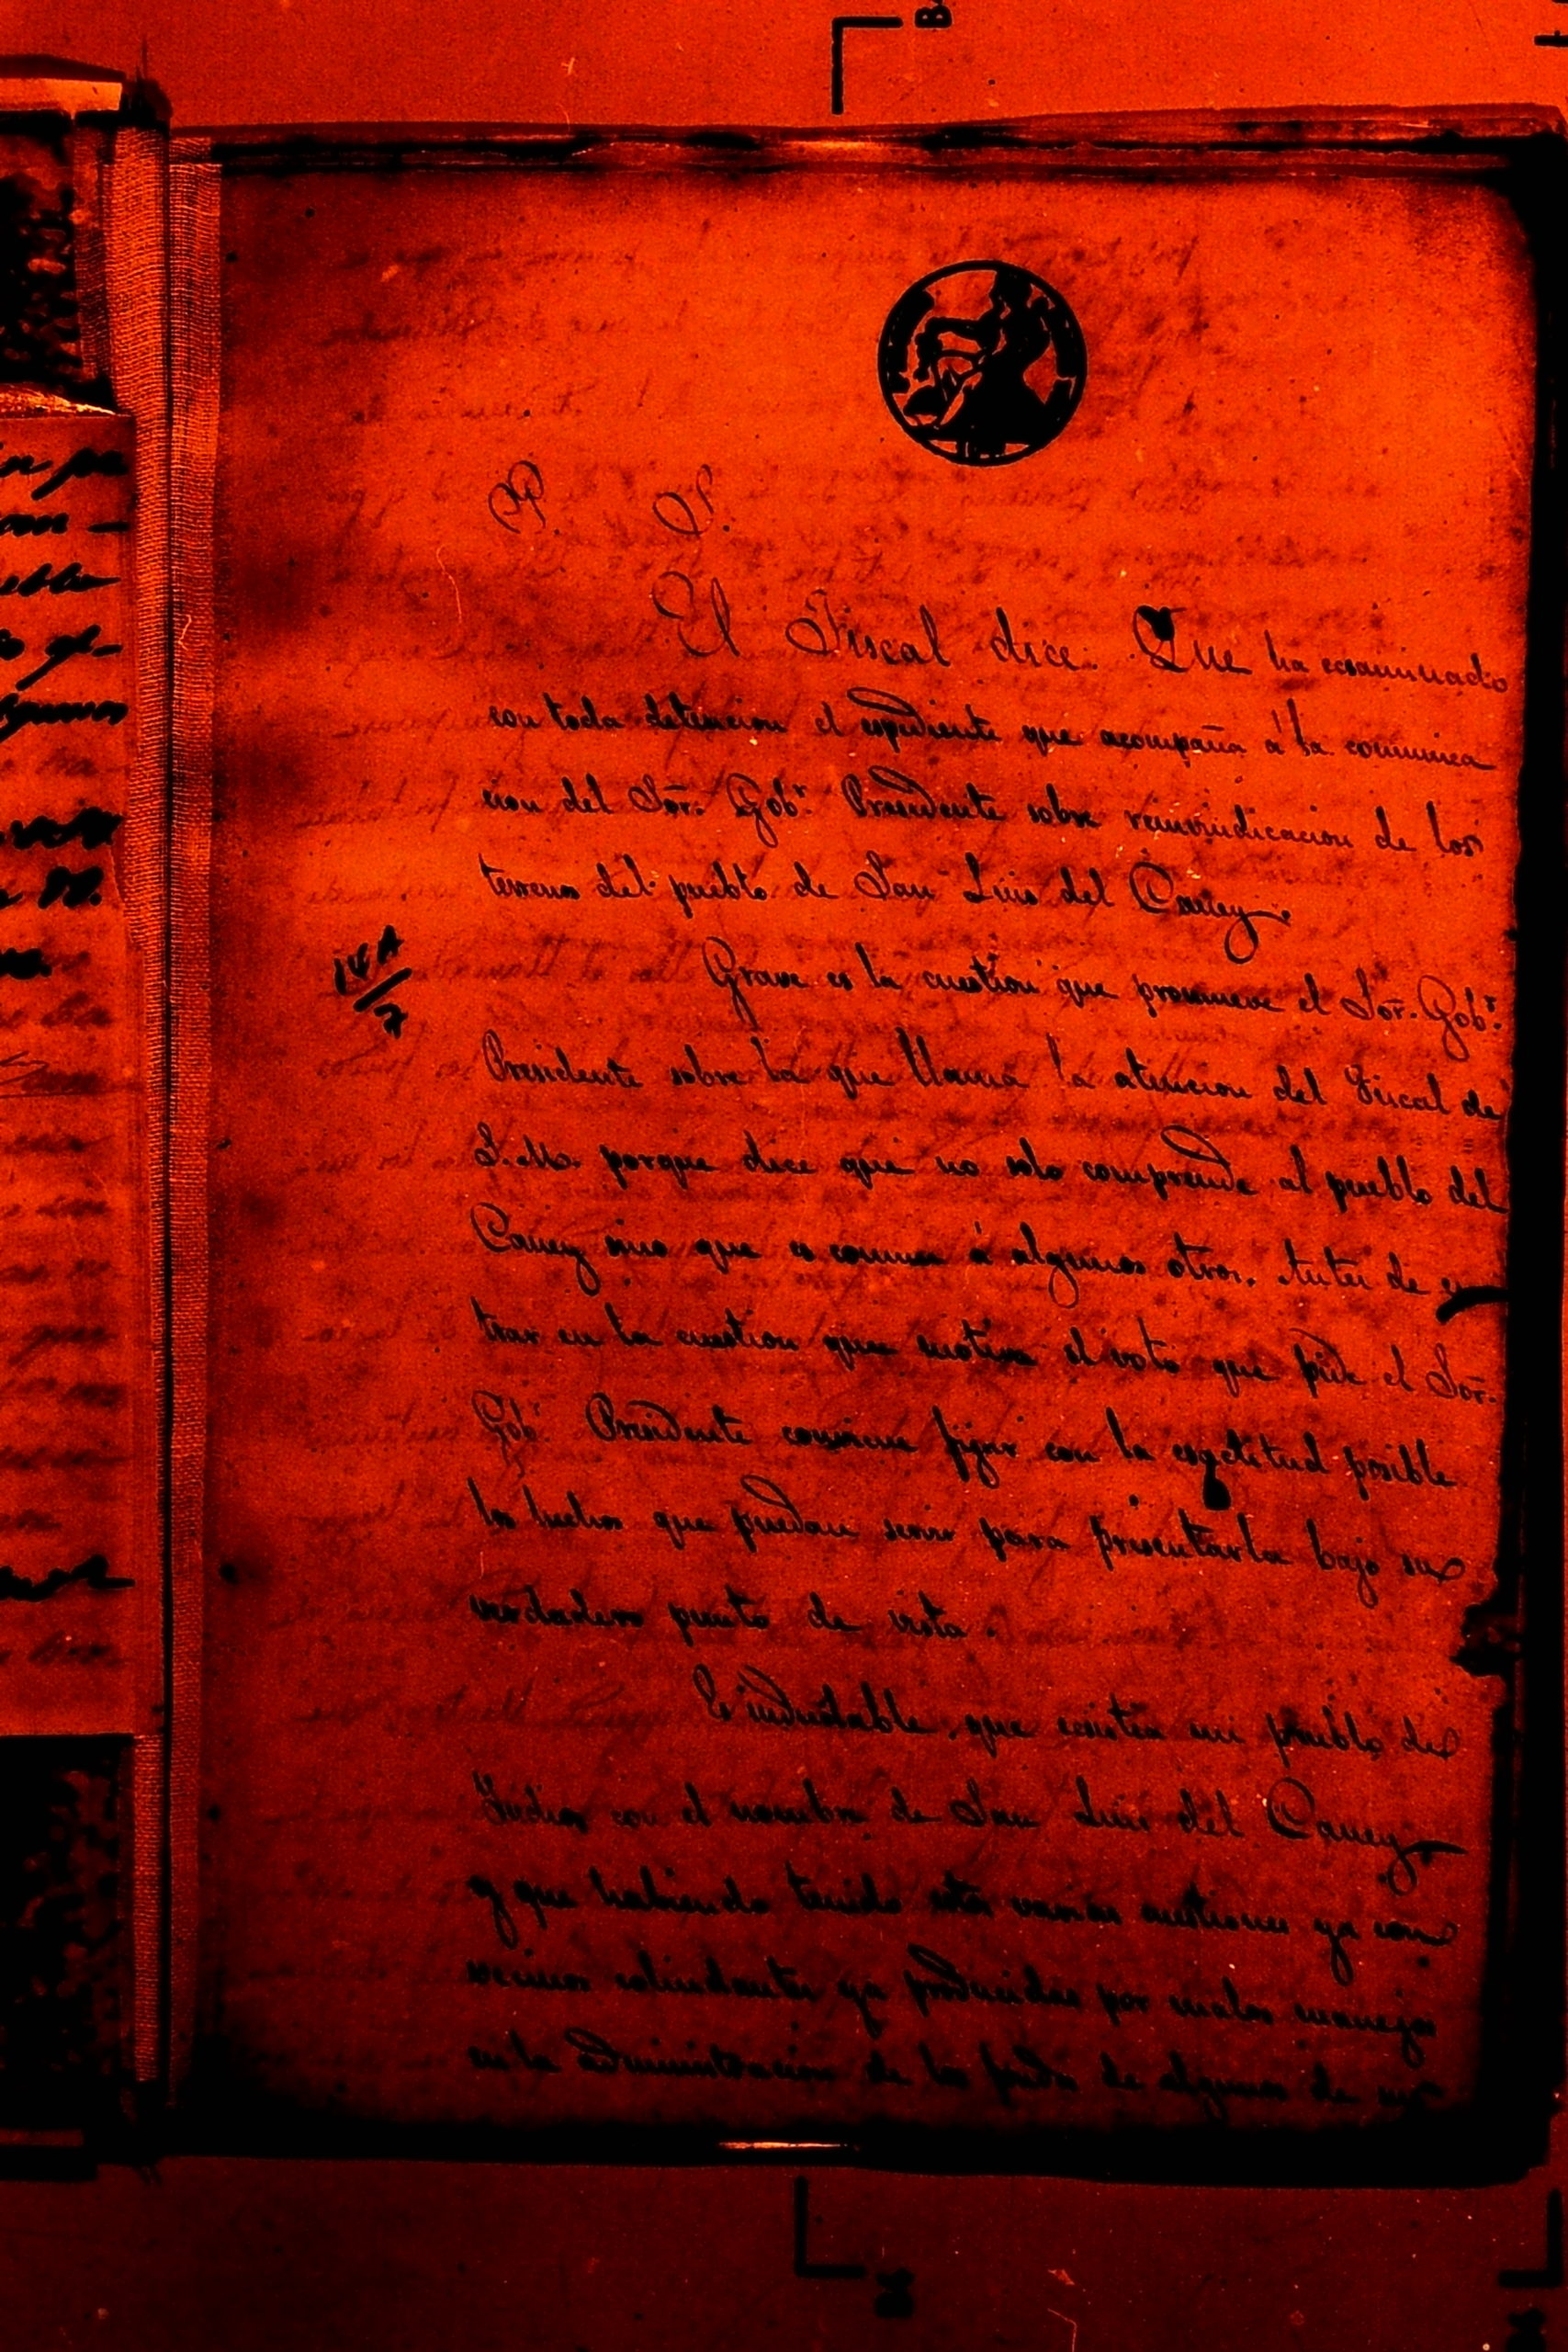 P. S.
El Fiscal dice: Que ha ecsaminado
con toda detencion el espediente que acompaña á la comunica
cion del Sor. Gobr. Presidente sobre reinvindicacion de los
terrenos del pueblo de San Luis del Caney.
Grave es la cuestion que promueve el Sor. Gobr.
14A
7
Presidente sobre la que llama la atencion del Fiscal de
S. M. porque dice que no solo comprende al pueblo del
Caney sino que es comun á algunos otros. Antes de en
trar en la cuestion que motiva el voto que pide el Sor.
Gobr. Presidente conviene fijar con la esactitud posible
los hechos que puedan servir para presentarla bajo su
verdadero punto de vista.
Es indudable que ecsistia un pueblo de
Indios con el nombre de San Luis del Caney
y que habiendo tenido este varias cuestiones ya con
vecinos colindantes ya producidas por malos manejos
en la administracion de los de algunos de sus